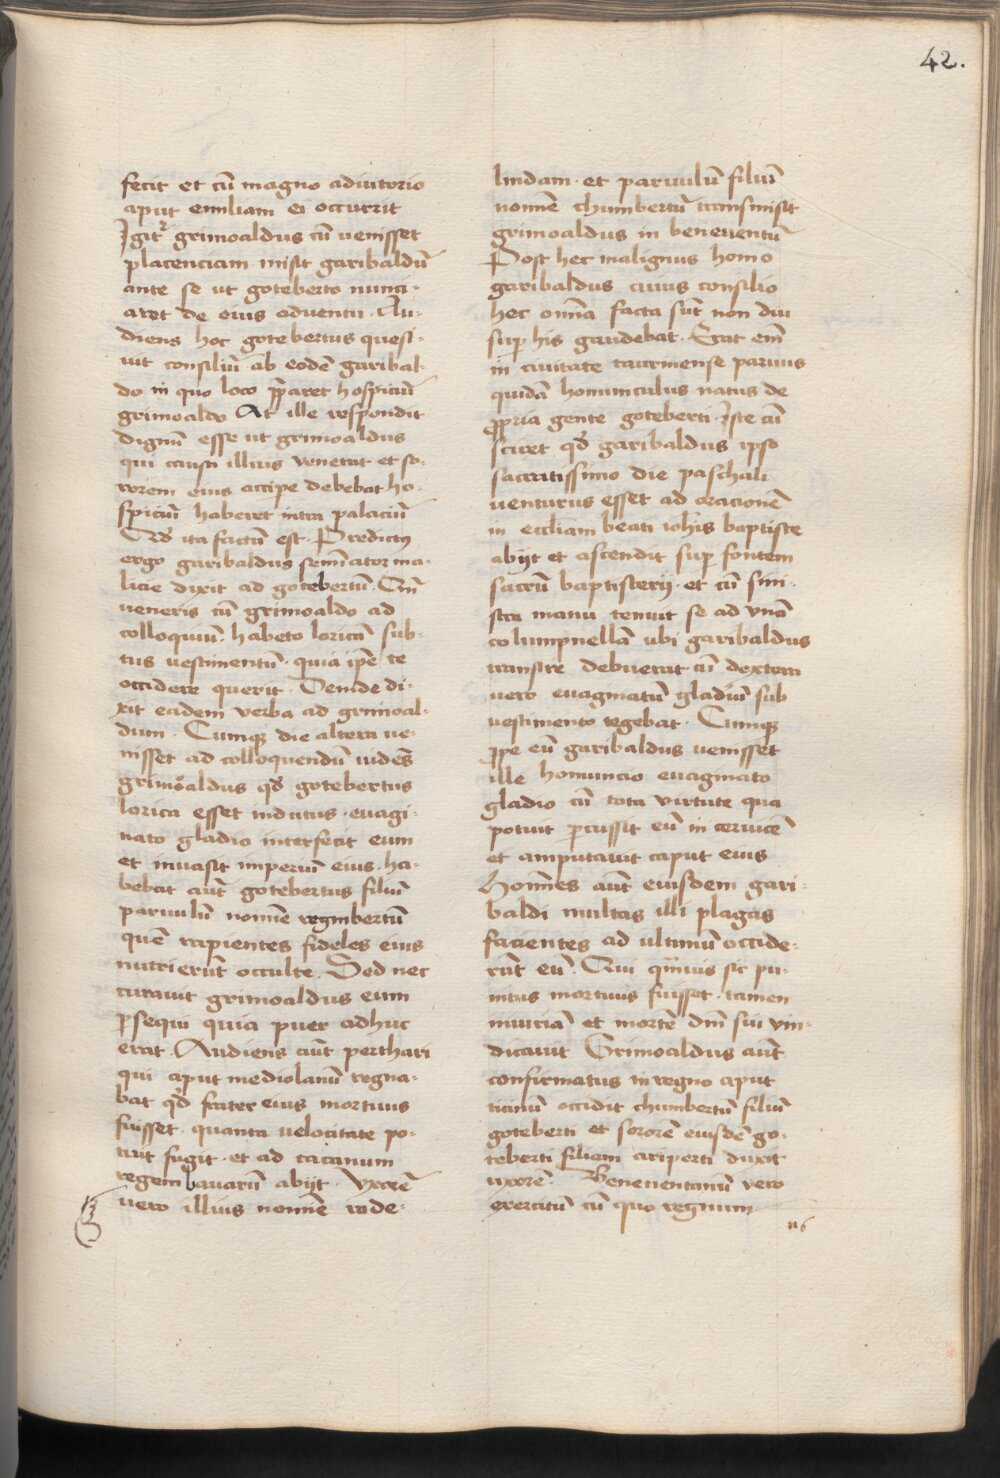 42.
fecit et cū magno adiutorio
aput emiliam ei occurrit
Igit᷑ grimoaldus cū uenisset
placenciam misit garibaldū
ante se ut goteberto nunci-
aret de eius aduentu. Au-
diens hoc gotebertus quesi-
uit consiliū ab eodē garibal-
do in quo loco p̄pararet hospiciū
grimoaldo At ille respondit
dignū esse ut grimoaldus
qui causa illius venerat et so-
rorem eius accipe debebat ho-
spiciū haberet intra palaciū
Qd̓ ita factū est. Predictus
ergo garibaldus semīator ma-
licie dixit ad gotebertū. Cū
ueneris cū grimoaldo ad
colloquiū. habeto loricā sub-
tus uestimentū. quia ipē te
occidere querit. Deinde di-
xit eadem verba ad grimoal-
dum. Cumqꝫ die altera ue-
nisset ad colloquendū uidēs
grimoaldus qd̓ gotebertus
lorica esset indutus. euagi-
nato gladio interfecit eum
et inuasit imperiū eius. ha-
bebat aūt gotebertus filiū
paruulū nomīe regimbertū
quē rapientes fideles eius
nutrierūt occulte. Sed nec
curauit grimoaldus eum
ꝑsequi quia puer adhuc
erat. Audiens aūt perthari
qui aput mediolanū regna-
bat qd̓ frater eius mortuus
fuisset. quanta uelocitate po-
tuit fugit. et ad cacanum
regem bauarū abijt. Vxorē
uero illius nomīe rode-
lindam. et paruulū filiū
nomīe chumbertū transmisit
grimoaldus in beneuentū
Post hec malignus homo
garibaldus cuius consilio
hec omīa facta sūt non diu
suꝑ his gaudebat. Erat em̄
in ciuitate taurinense paruus
quidā homunculus natus de
ꝓpria gente goteberti. Iste cū
sciret qd̓ garibaldus ipso
sacratissimo die paschali
uenturus esset ad oracionē
in eccliam beati ioh̄is baptiste
abijt et ascendit suꝑ fontem
sacrū baptisterij. et cū sini-
stra manu tenuit se ad vnā
columpnellā ubi garibaldus
transire debuerat. cū dextera
uero euaginatū gladiū sub
uestimento tegebat. Cumqꝫ
ꝓpe eū garibaldus uenisset
ille homuncio euaginato
gladio cū tota virtute qua
potuit ꝑcussit eū in ceruicē
et amputauit caput eius
Homīes aūt eiusdem gari-
baldi multas illi plagas
facientes ad ultimū occide-
rūt eū. Qui qm̄uis sic pu-
nitus mortuus fuisset. tamen
iniuriā et mortē dn̄i sui vin-
dicauit Grimoaldus aūt
confirmatus in regno aput
ticinū occidit chumbertū filiū
goteberti et sororē eiusdē go-
teberti filiam ariperti duxit
uxorē. Beneuentanū vero
exercitū cū quo regnum
n6